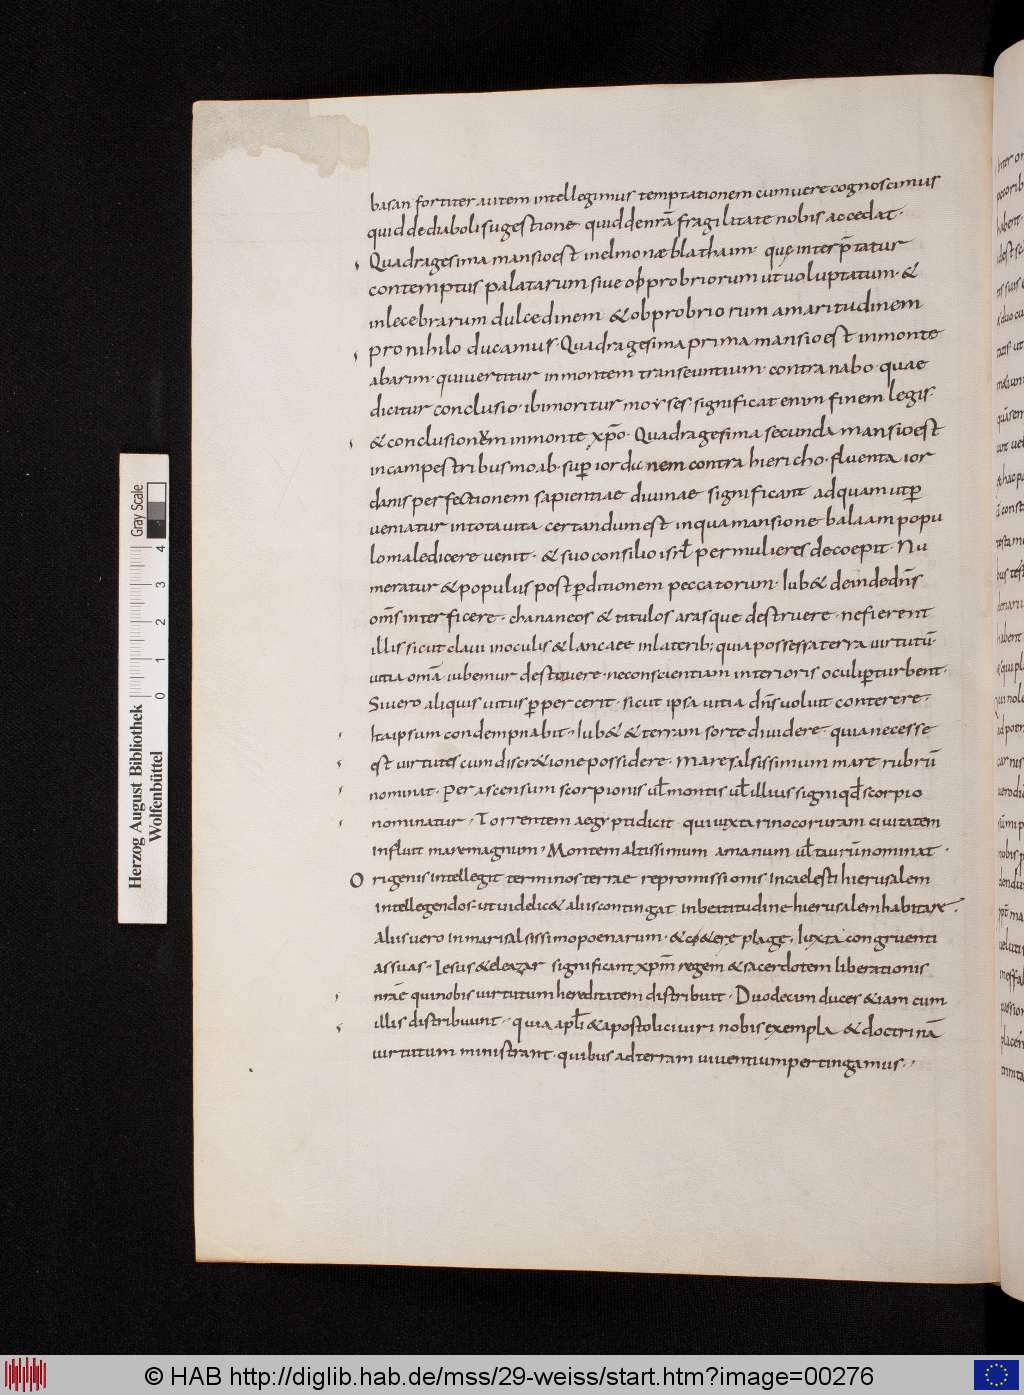 basan fortiter autem intellegimus temptationem cum vere cognoscimus
quid de diaboli sugestione quid de nrā fragilitate nobis accedat.
Quadragesima mansio est in elmonæ blathaim· quę interp̄tatur
contemptus palatarum siue obprobriorum ut uoluptatum· &
inlecebrarum dulcedinem & obprobriorum amaritudinem
pro nihilo ducamus· Quadragesima prima mansio est in monte
abarim· qui uertitur in montem transeuntium· contra nabo· quae
dicitur conclusio· ibi moritur moyses· significat enim finem legis·
& conclusionem in monte xp̄o· Quadragesima secunda mansio est
in campestribus moab· sup̄ iordanem contra hiericho· fluenta ior
danis perfectionem sapientiae diuinae significant ad quam ut p̄
ueniatur in tota uita certandum est in qua mansione balaam popu
lo maledicere uenit· & suo consilio isrl̄ per mulieres decoepit· Nu
meratur & populus post p̄ditionem peccatorum· Iub& deinde dn̄s
om̄s interficere· chananeos & titulos aras que destruere· ne fierent
illis sicut claui in oculis & lanceae in laterib; quia possessa terra uirtutū·
uitia omā iubemur destruere· ne conscientiam interioris oculi p̄turbent·
Si uero aliquis uitiis p̄percerit· sicut ipsa uitia dn̄s uoluit conterere·
Ita ipsum condempnabit· Iub& & terram sorte diuidere· quia necesse
est uirtutes cum discr&ione possidere· mare salsissimum mare rubrū
nominat· Per ascensum scorpionis ul̄ montis ul̄ illius signi qd̄ scorpio
nominatur· Torrentem aegypti dicit qui iuxta rinocoruram ciuitatem
influit mare magnum· Montem altissimum amanum ul̄ taurū nominat·
Origenis intellegit terminos terrae repromissionis in caelesti hierusalem
intellegendos· ut uidelic& alius contingat in beatitudine hierusalem habitare·
Alius uero in maris salsissimo poenarum· & c&ere plagę· Iuxta congruenti
as suas· Iesus & eleazar significant xp̄m regem & sacerdotem liberationis
nr̄ae qui nobis uirtutum hereditatem distribuit· Duodecim duces &iam cum
illis distribuunt· quia apl̄i & apostolici uiri nobis exempla & doctrinā
uirtutum ministrant· quibus ad terram uiuentium pertingamus·
Herzog August Bibliothek
Wolfenbüttel
Gray Scale
0 1 2 3 4
© HAB http://diglib.hab.de/mss/29-weiss/start.htm?image=00276